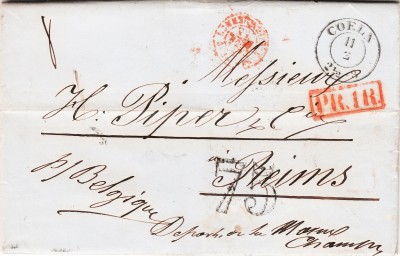 COELN
11
2
PR.1R.
Messieurs
H. Piper & Cie
à
Reims
75
p/ Belgique
Départ de la Marne